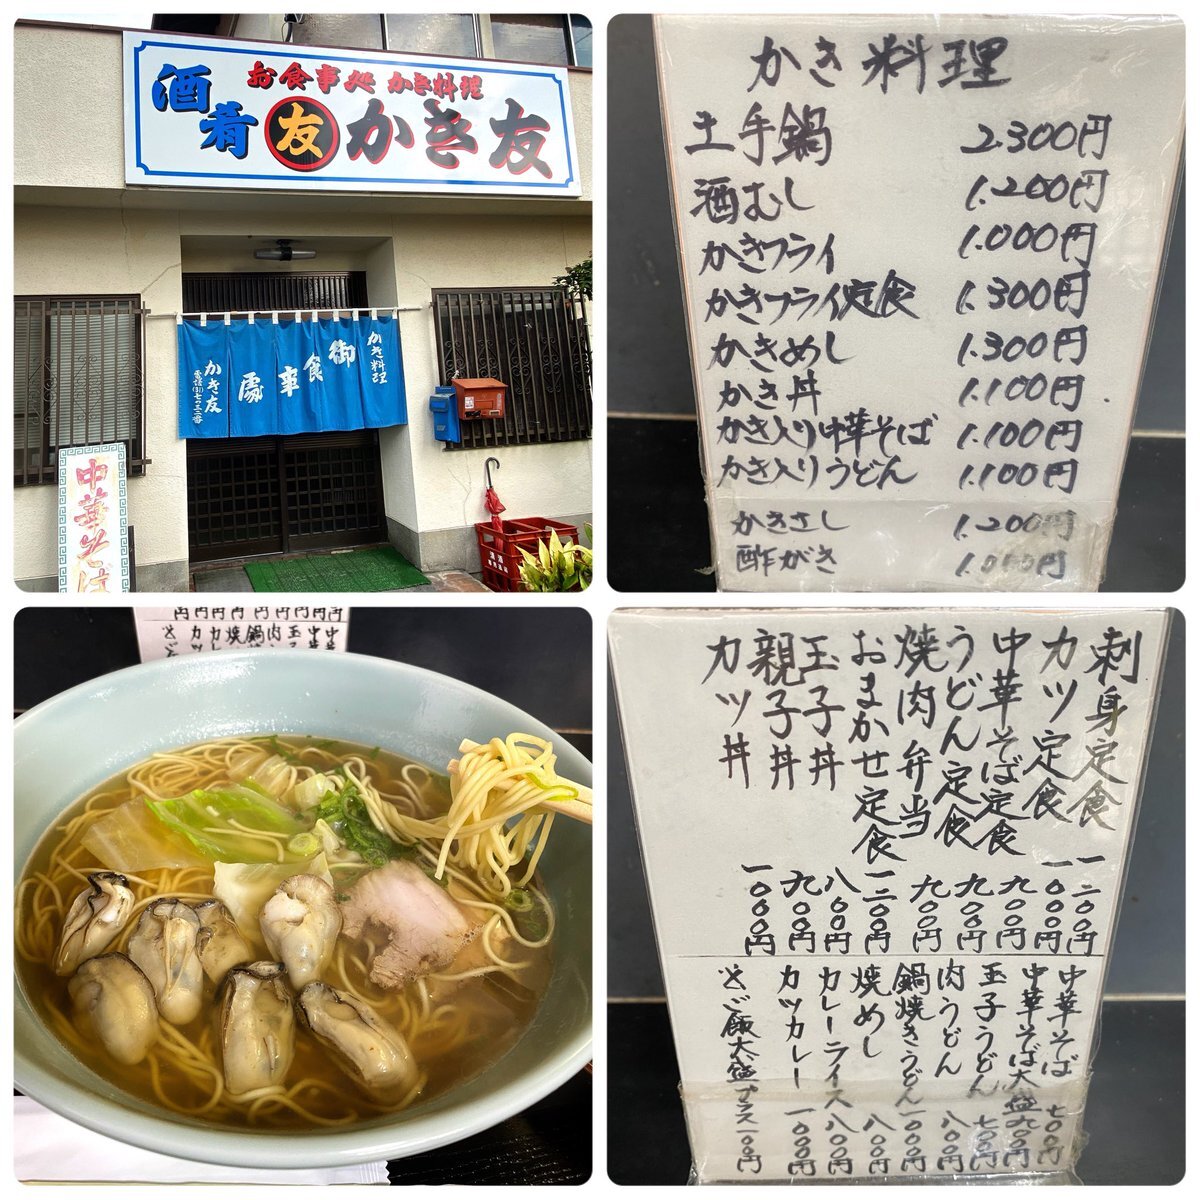 お食事処 かき料理
酒肴 友 かき友
かき料理
御食事處
かき友
中華そば
かき料理
土手鍋 2.300円
酒むし 1.200円
かきフライ 1.000円
かきフライ定食 1.300円
かきめし 1.300円
かき丼 1.100円
かき入り中華そば 1.100円
かき入りうどん 1.100円
かきさし 1.200円
酢がき 1.000円
刺身定食 一二〇〇円
カツ定食 一〇〇〇円
中華そば定食 九〇〇円
うどん定食 九〇〇円
焼肉弁当 九〇〇円
おまかせ定食 一二〇〇円
玉子丼 八〇〇円
親子丼 九〇〇円
カツ丼 一〇〇〇円
中華そば 七〇〇円
中華そば大盛 九〇〇円
玉子うどん 七〇〇円
肉うどん 八〇〇円
鍋焼きうどん 一〇〇〇円
焼めし 八〇〇円
カレーライス 八〇〇円
カツカレー 一〇〇〇円
※ご飯大盛プラス一〇〇円